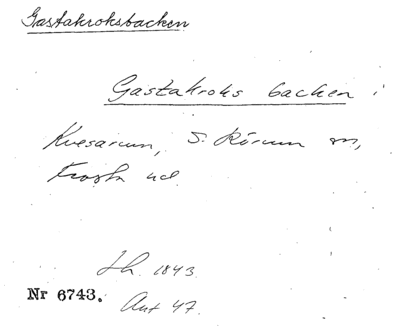 Gastakroksbacken
Gastakroks backen i
Kvesarum, S. Rörum sn,
Frosta hd.
Lh. 1843
Nr 6743. Ant 47.